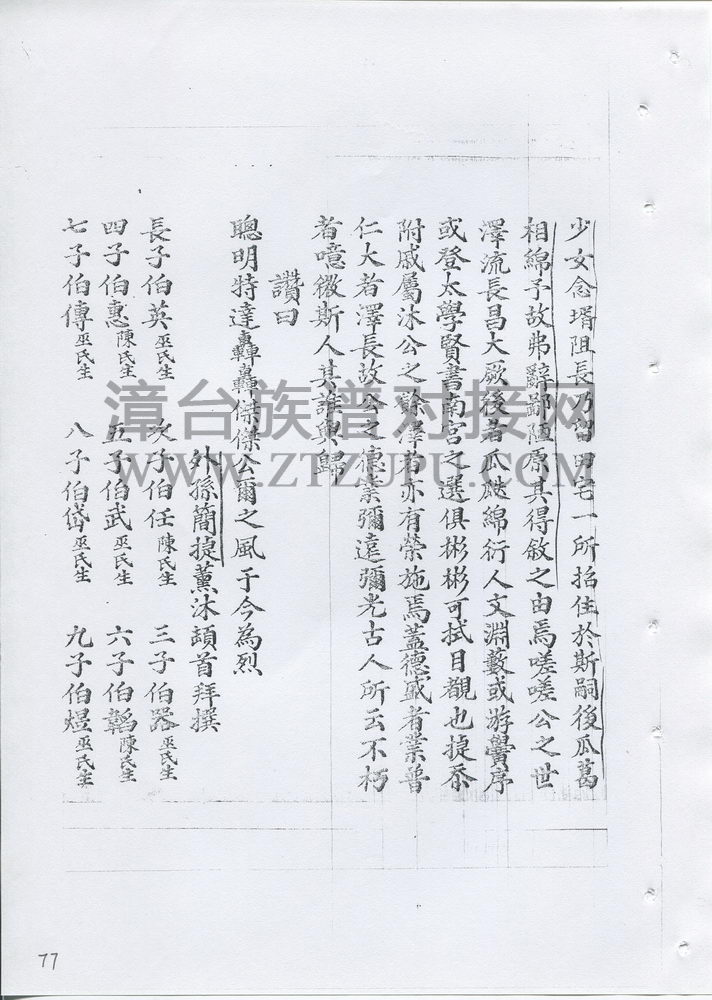 少女念壻阻長乃留田宅一所招住於斯嗣後瓜葛
相綿予故弗辭鄙陋原其得敘之由焉嗟嗟公之世
澤流長昌大厥後者瓜瓞綿衍人文淵藪或游黌序
或登太學賢書南宮之選俱彬彬可拭目覩也捷忝
附戚屬沐公之餘澤者亦有榮施焉蓋德盛者業普
仁大者澤長故公之德業彌遠彌光古人所云不朽
者噫微斯人其誰與歸
讚曰
聰明特達轟轟傑傑公爾之風于今為烈
外孫簡捷薰沐頓首拜撰
長子伯英巫氏生 次子伯任陳氏生 三子伯器巫氏生
四子伯惠陳氏生 五子伯武巫氏生 六子伯韜陳氏生
七子伯傳巫氏生 八子伯岱巫氏生 九子伯煜巫氏生
漳台族谱对接网
WWW.ZTZUPU.COM
77